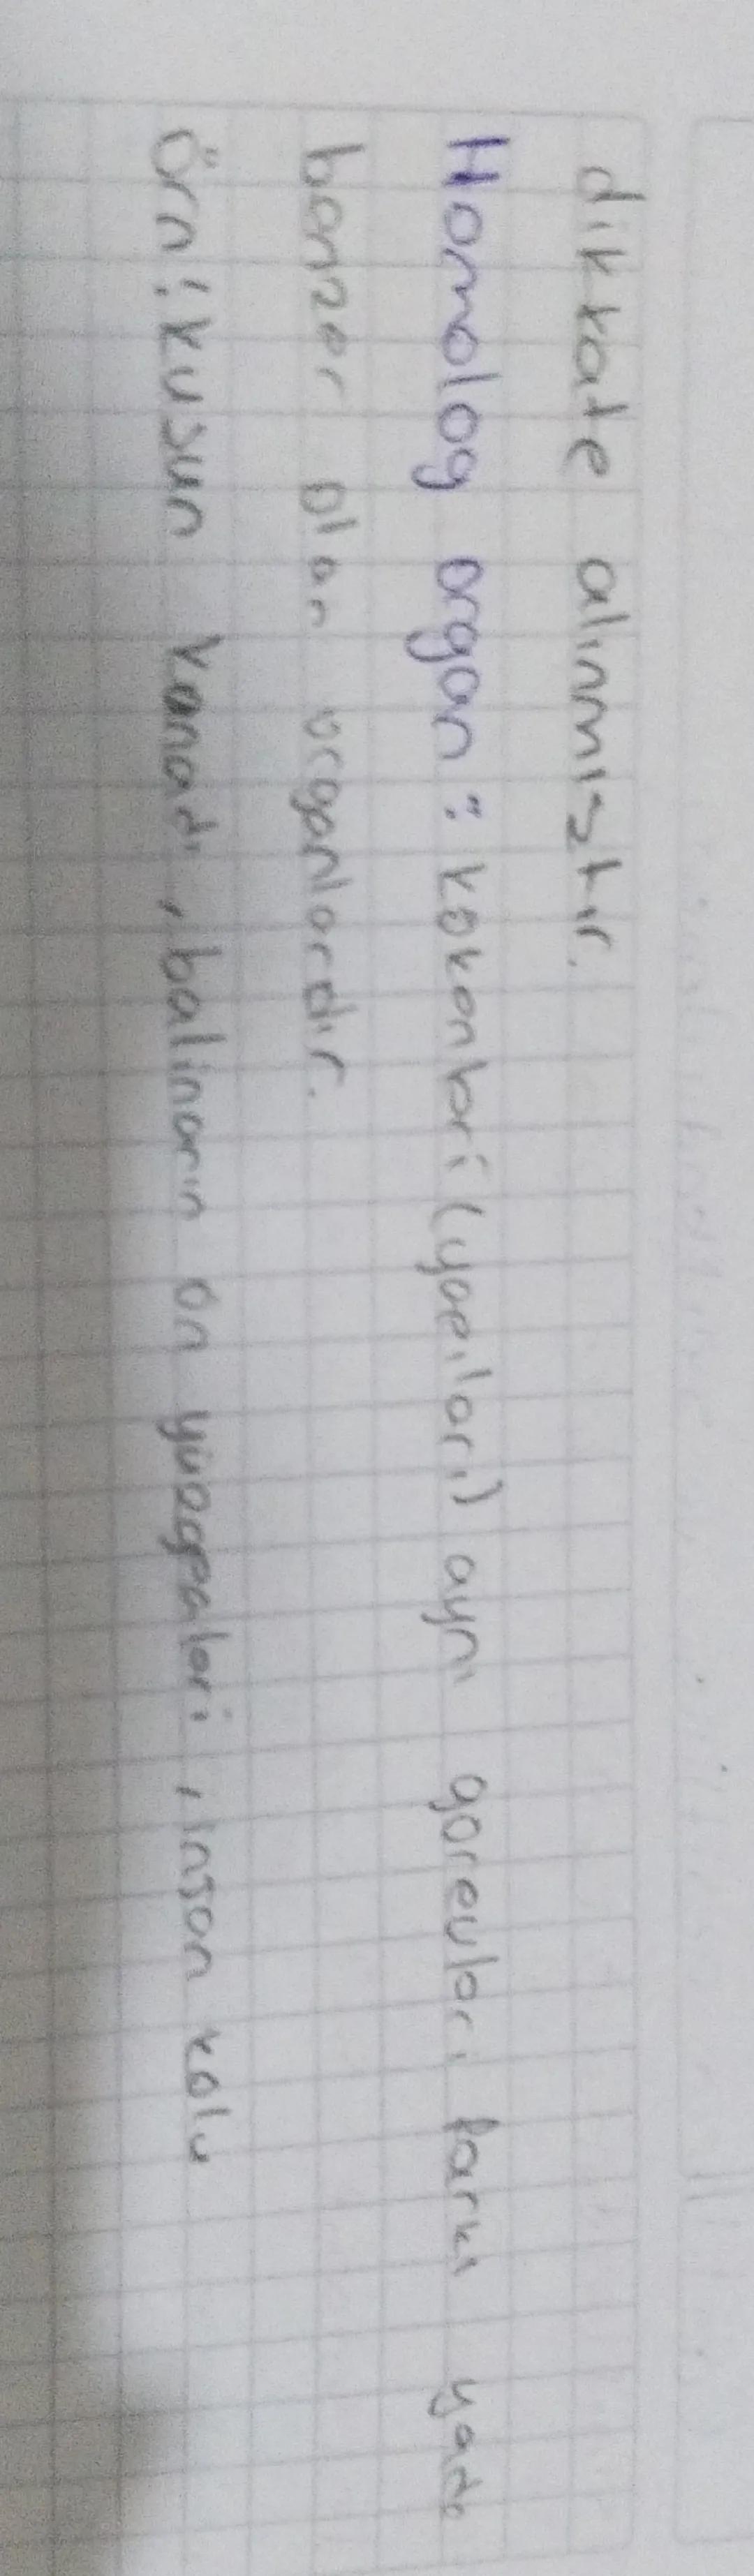 dikkate alınmıştır.
Homolog organ: kökenleri (yapıları) aynı görevleri farklı yada
benzer olan organlardır.
Örn: kuşun kanadı, balinanın ön yüzgeçleri, insan kolu